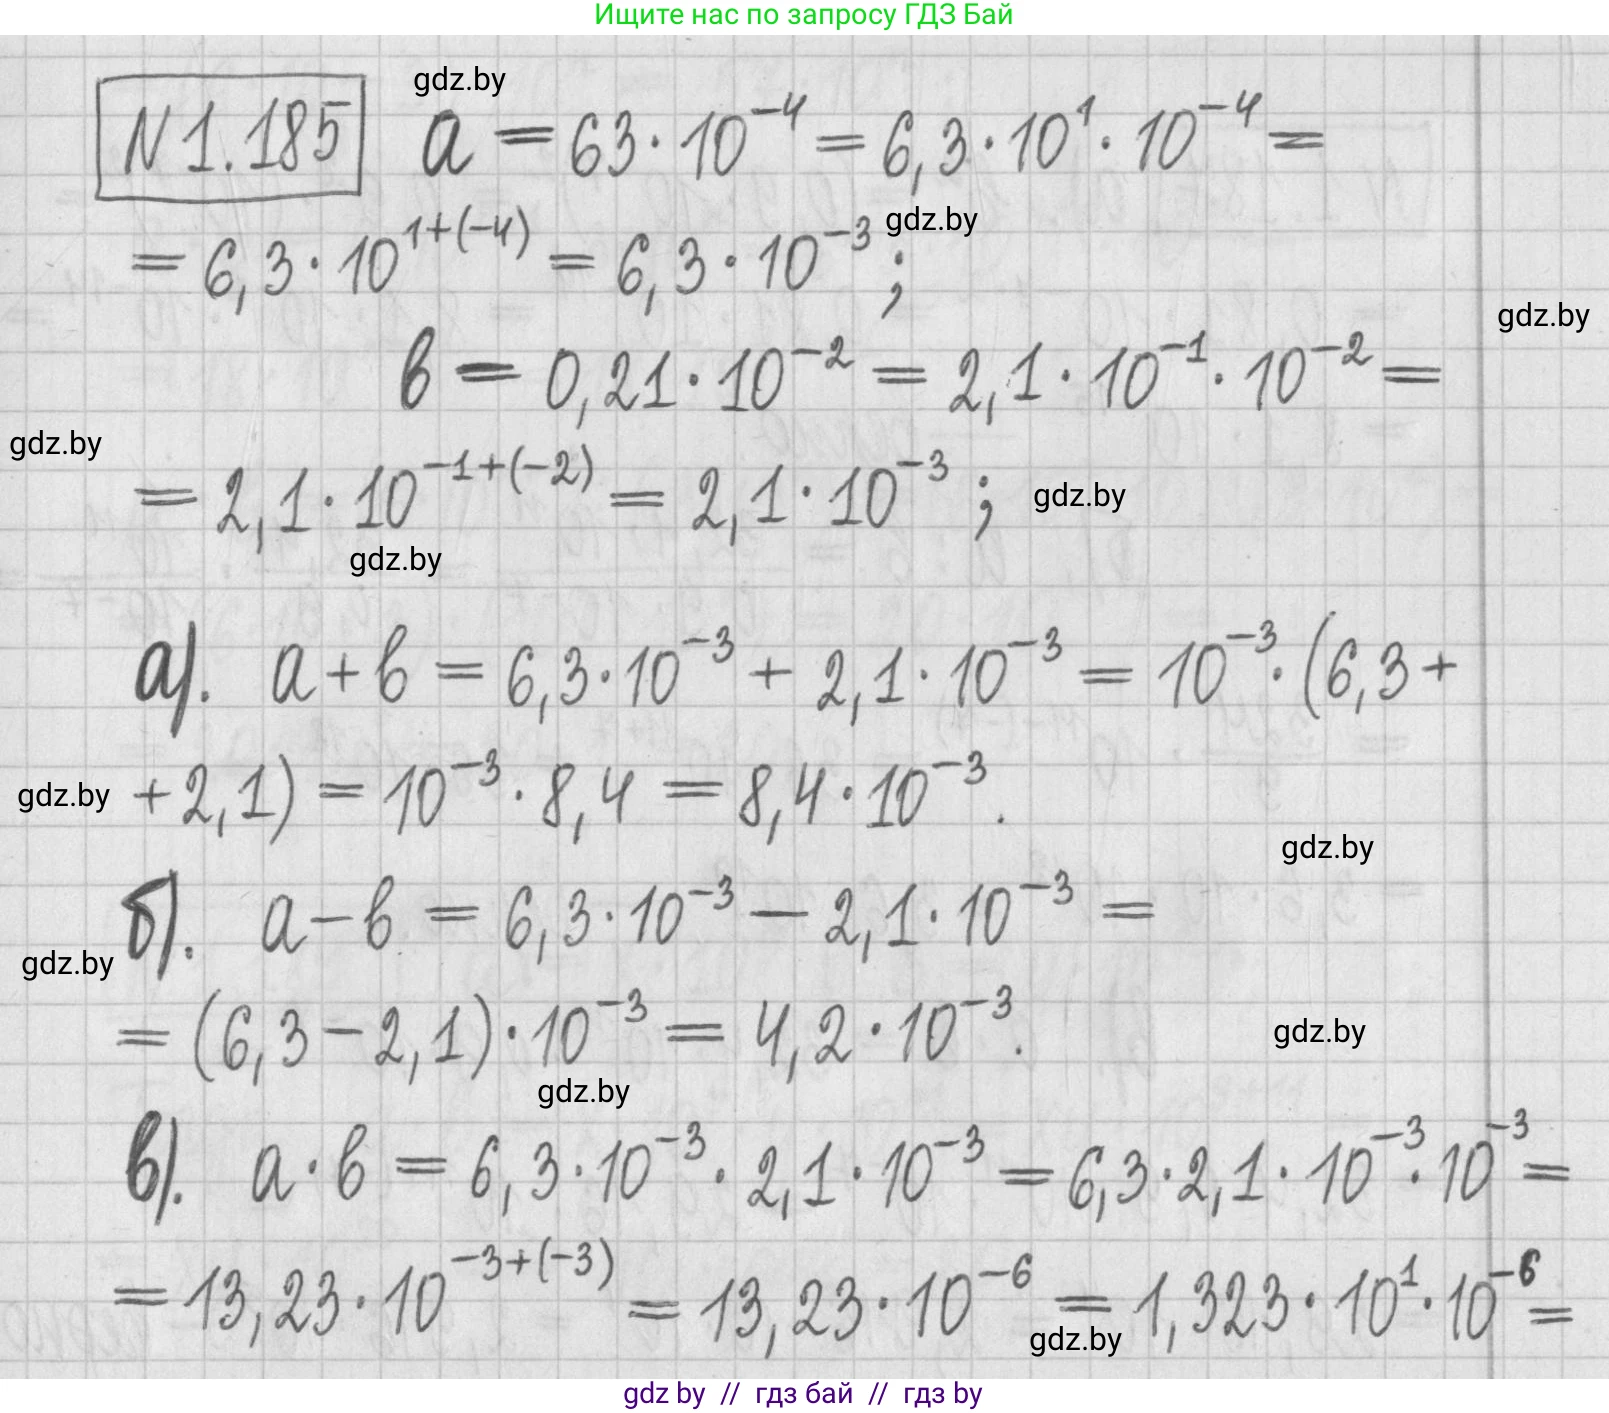 Ищите нас по запросу ГДЗ Бай
gdz.by
N 1.185 a = 63 · 10⁻⁴ = 6,3 · 10¹ · 10⁻⁴ =
= 6,3 · 10¹⁺⁽⁻⁴⁾ = 6,3 · 10⁻³ ;
gdz.by
gdz.by
в = 0,21 · 10⁻² = 2,1 · 10⁻¹ · 10⁻² =
gdz.by
= 2,1 · 10⁻¹⁺⁽⁻²⁾ = 2,1 · 10⁻³ ;
gdz.by
gdz.by
а). a + в = 6,3 · 10⁻³ + 2,1 · 10⁻³ = 10⁻³ · (6,3 +
gdz.by
+ 2,1) = 10⁻³ · 8,4 = 8,4 · 10⁻³.
gdz.by
б). a − в = 6,3 · 10⁻³ − 2,1 · 10⁻³ =
gdz.by
= (6,3 − 2,1) · 10⁻³ = 4,2 · 10⁻³.
gdz.by
gdz.by
в). a · в = 6,3 · 10⁻³ · 2,1 · 10⁻³ = 6,3 · 2,1 · 10⁻³ · 10⁻³ =
= 13,23 · 10⁻³⁺⁽⁻³⁾ = 13,23 · 10⁻⁶ = 1,323 · 10¹ · 10⁻⁶ =
gdz.by
gdz by // гдз бай // гдз by